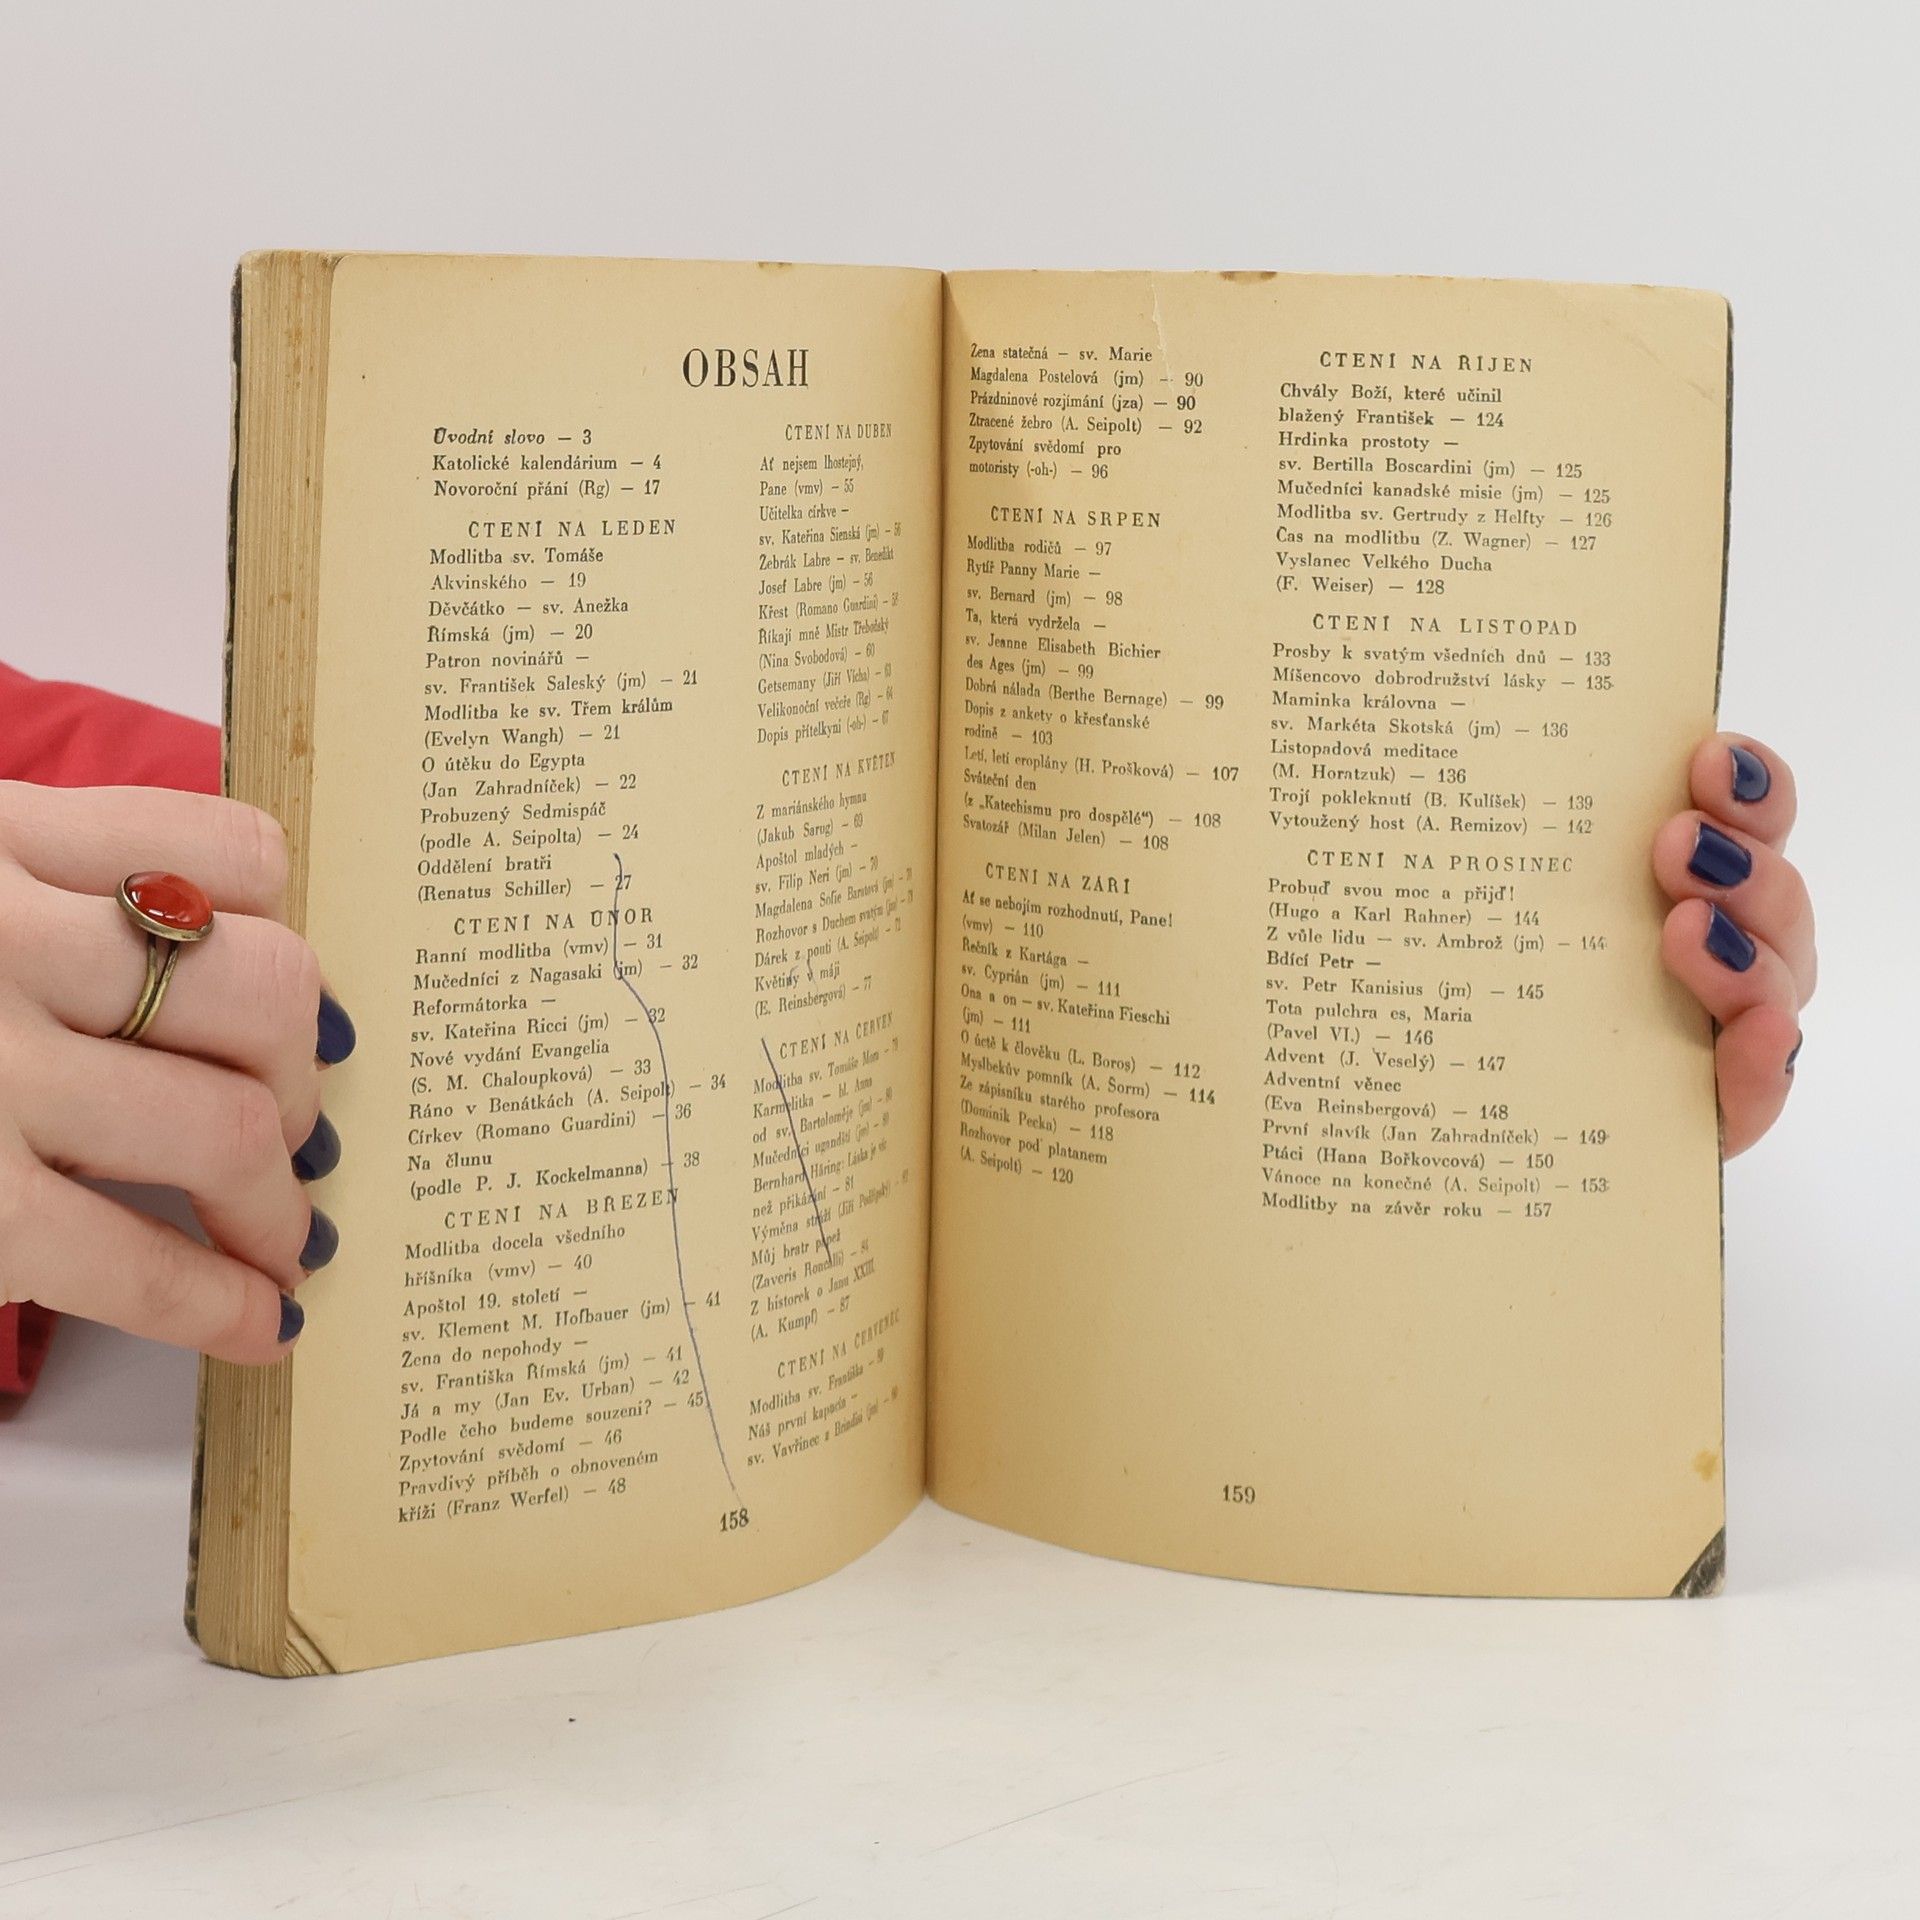 OBSAH
Úvodní slovo — 3
Katolické kalendárium — 4
Novoroční přání (Rg) — 17
ČTENÍ NA LEDEN
Modlitba sv. Tomáše
Akvinského — 19
Děvčátko — sv. Anežka
Římská (jm) — 20
Patron novinářů —
sv. František Saleský (jm) — 21
Modlitba ke sv. Třem králům
(Evelyn Wangh) — 21
O útěku do Egypta
(Jan Zahradníček) — 22
Probuzený Sedmispáč
(podle A. Seipolta) — 24
Oddělení bratři
(Renatus Schiller) — 27
ČTENÍ NA ÚNOR
Ranní modlitba (vmv) — 31
Mučedníci z Nagasaki (jm) — 32
Reformátorka —
sv. Kateřina Ricci (jm) — 32
Nové vydání Evangelia
(S. M. Chaloupková) — 33
Ráno v Benátkách (A. Seipolt) — 34
Církev (Romano Guardini) — 36
Na člunu
(podle P. J. Kockelmanna) — 38
ČTENÍ NA BŘEZEN
Modlitba docela všedního
hříšníka (vmv) — 40
Apoštol 19. století —
sv. Klement M. Hofbauer (jm) — 41
Žena do nepohody —
sv. Františka Římská (jm) — 41
Já a my (Jan Ev. Urban) — 42
Podle čeho budeme souzeni? — 45
Zpytování svědomí — 46
Pravdivý příběh o obnoveném
kříži (Franz Werfel) — 48
ČTENÍ NA DUBEN
Ať nejsem lhostejný,
Pane (vmv) — 55
Učitelka církve —
sv. Kateřina Sienská (jm) — 56
Žebrák Labre — sv. Benedikt
Josef Labre (jm) — 56
Křest (Romano Guardini) — 58
Říkají mně Mistr Třeboňský
(Nina Svobodová) — 60
Getsemany (Jiří Vícha) — 63
Velikonoční večeře (Rg) — 64
Dopis přítelkyni (-oh-) — 67
ČTENÍ NA KVĚTEN
Z mariánského hymnu
(Jakub Sarug) — 69
Apoštol mladých —
sv. Filip Neri (jm) — 70
Magdalena Sofie Baratová (jm) — 70
Rozhovor s Duchem svatým (jm)
Dárek z pouti (A. Seipolt) — 72
Květiny v máji
(E. Reinsbergová) — 77
ČTENÍ NA ČERVEN
Modlitba sv. Tomáše Mora — 79
Karmelitka — bl. Anna
od sv. Bartoloměje (jm) — 80
Mučedníci ugandští (jm) — 80
Bernhard Häring: Láska je víc
než přikázání — 81
Výměna stráží (Jiří
Můj bratr papež
(Zaveris Roncalli) — 84
Z historek o Janu XXIII.
(A. Kumpf) — 87
ČTENÍ NA ČERVENEC
Modlitba sv. Františka — 89
Náš první kapucín —
sv. Vavřinec z Brindisi (jm) — 90
158
Žena statečná — sv. Marie
Magdalena Postelová (jm) — 90
Prázdninové rozjímání (jza) — 90
Ztracené žebro (A. Seipolt) — 92
Zpytování svědomí pro
motoristy (-oh-) — 96
ČTENÍ NA SRPEN
Modlitba rodičů — 97
Rytíř Panny Marie —
sv. Bernard (jm) — 98
Ta, která vydržela —
sv. Jeanne Elisabeth Bichier
des Ages (jm) — 99
Dobrá nálada (Berthe Bernage) — 99
Dopis z ankety o křesťanské
rodině — 103
Letí, letí eroplány (H. Prošková) — 107
Sváteční den
(z „Katechismu pro dospělé“) — 108
Svatozář (Milan Jelen) — 108
ČTENÍ NA ZÁŘÍ
Ať se nebojím rozhodnutí, Pane!
(vmv) — 110
Řečník z Kartága —
sv. Cyprián (jm) — 111
Ona a on — sv. Kateřina Fieschi
(jm) — 111
O úctě k člověku (L. Boros) — 112
Myslbekův pomník (A. Šorm) — 114
Ze zápisníku starého profesora
(Dominik Pecka) — 118
Rozhovor pod platanem
(A. Seipolt) — 120
ČTENÍ NA ŘÍJEN
Chvály Boží, které učinil
blažený František — 124
Hrdinka prostoty —
sv. Bertilla Boscardini (jm) — 125
Mučedníci kanadské misie (jm) — 125
Modlitba sv. Gertrudy z Helfty — 126
Čas na modlitbu (Z. Wagner) — 127
Vyslanec Velkého Ducha
(F. Weiser) — 128
ČTENÍ NA LISTOPAD
Prosby k svatým všedních dnů — 133
Míšencovo dobrodružství lásky — 135
Maminka královna —
sv. Markéta Skotská (jm) — 136
Listopadová meditace
(M. Horatzuk) — 136
Trojí pokleknutí (B. Kulíšek) — 139
Vytoužený host (A. Remizov) — 142
ČTENÍ NA PROSINEC
Probuď svou moc a přijď!
(Hugo a Karl Rahner) — 144
Z vůle lidu — sv. Ambrož (jm) — 144
Bdící Petr —
sv. Petr Kanisius (jm) — 145
Tota pulchra es, Maria
(Pavel VI.) — 146
Advent (J. Veselý) — 147
Adventní věnec
(Eva Reinsbergová) — 148
První slavík (Jan Zahradníček) — 149
Ptáci (Hana Bořkovcová) — 150
Vánoce na konečné (A. Seipolt) — 153
Modlitby na závěr roku — 157
159